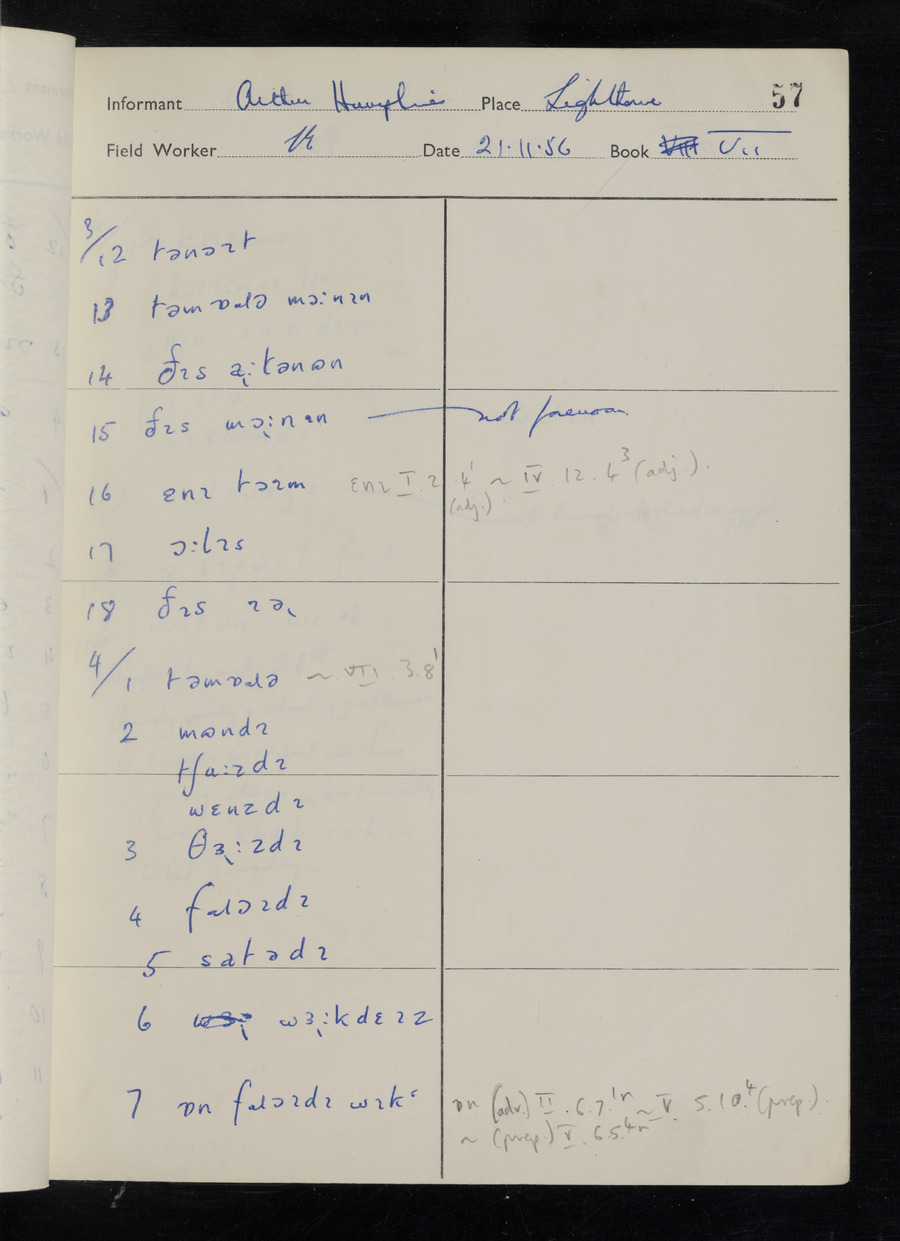 57
Informant Arthur Humphries Place Lighthorne
Field Worker Date 21·11·56 Book VII
3/12 tənəɪt
13 təmɒɹə mɔ:nɪn
14 ðɪs tənən
15 ðɪs mɔ̜:nɪn not forenoon
16 ɛnɪ təɪm ɛnɪ I.2.4¹ (adj.) ~ IV 12.4³ (adj.).
17 ɔ:lɪs
18 ðɪs ɪə̜
4/1 təmɒɹə ~ VII.3.8¹
2 mɷndɪ
tʃu:zdɪ
wɛnzdɪ
3 θɜ̜:zdɪ
4 fɹəɪdɪ
5 satədɪ
6 wɜ̜:kdɛɪz
7 ɒn fɹəɪdɪ wɪkʻ ɒn (adv.) II.6.7¹ⁿ ~ V 5.10.⁴ (prep.).
~ (prep.) V.6.5.⁴ⁿ